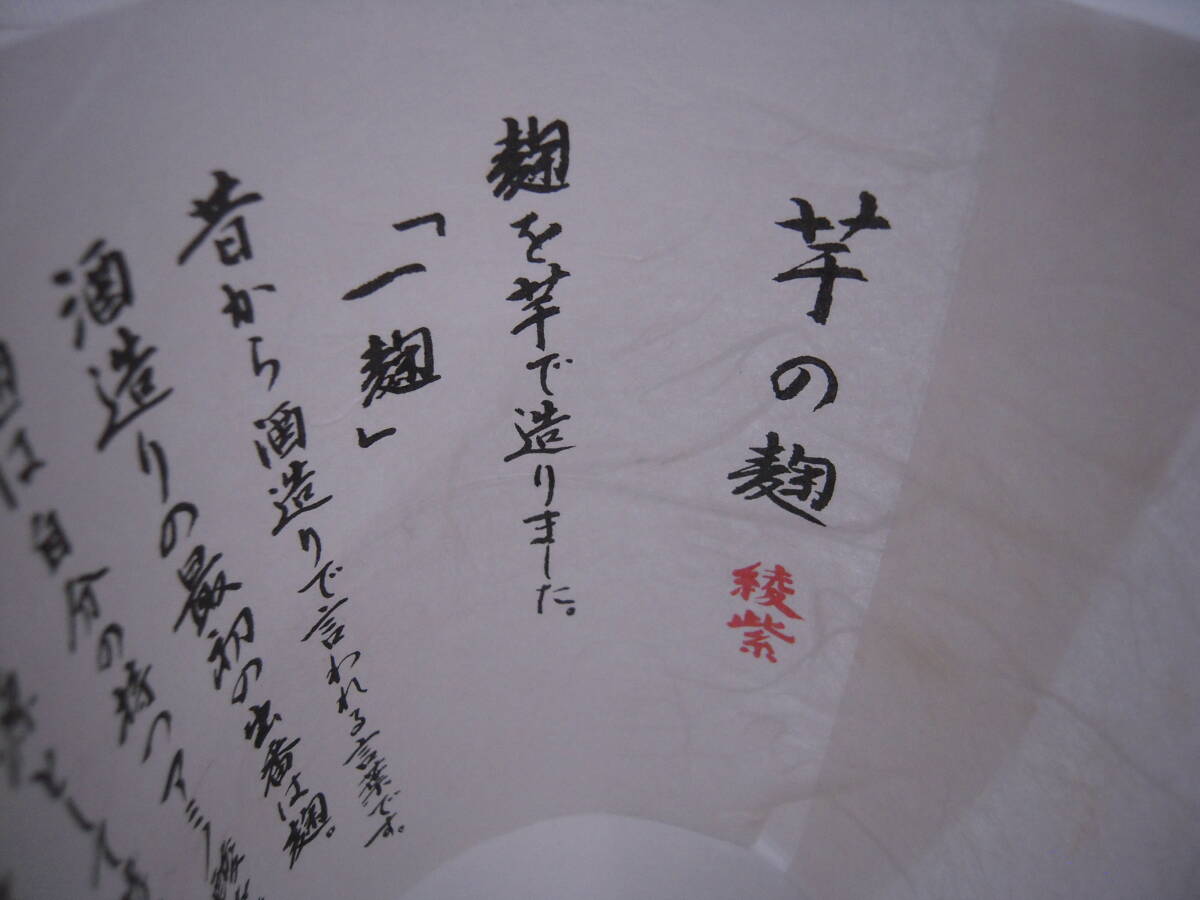 芋の麹
綾紫
麹を芋で造りました。
「一麹」
昔から酒造りで言われる言葉です。
酒造りの最初の出番は麹。
麹は自分の持つアミノ酸